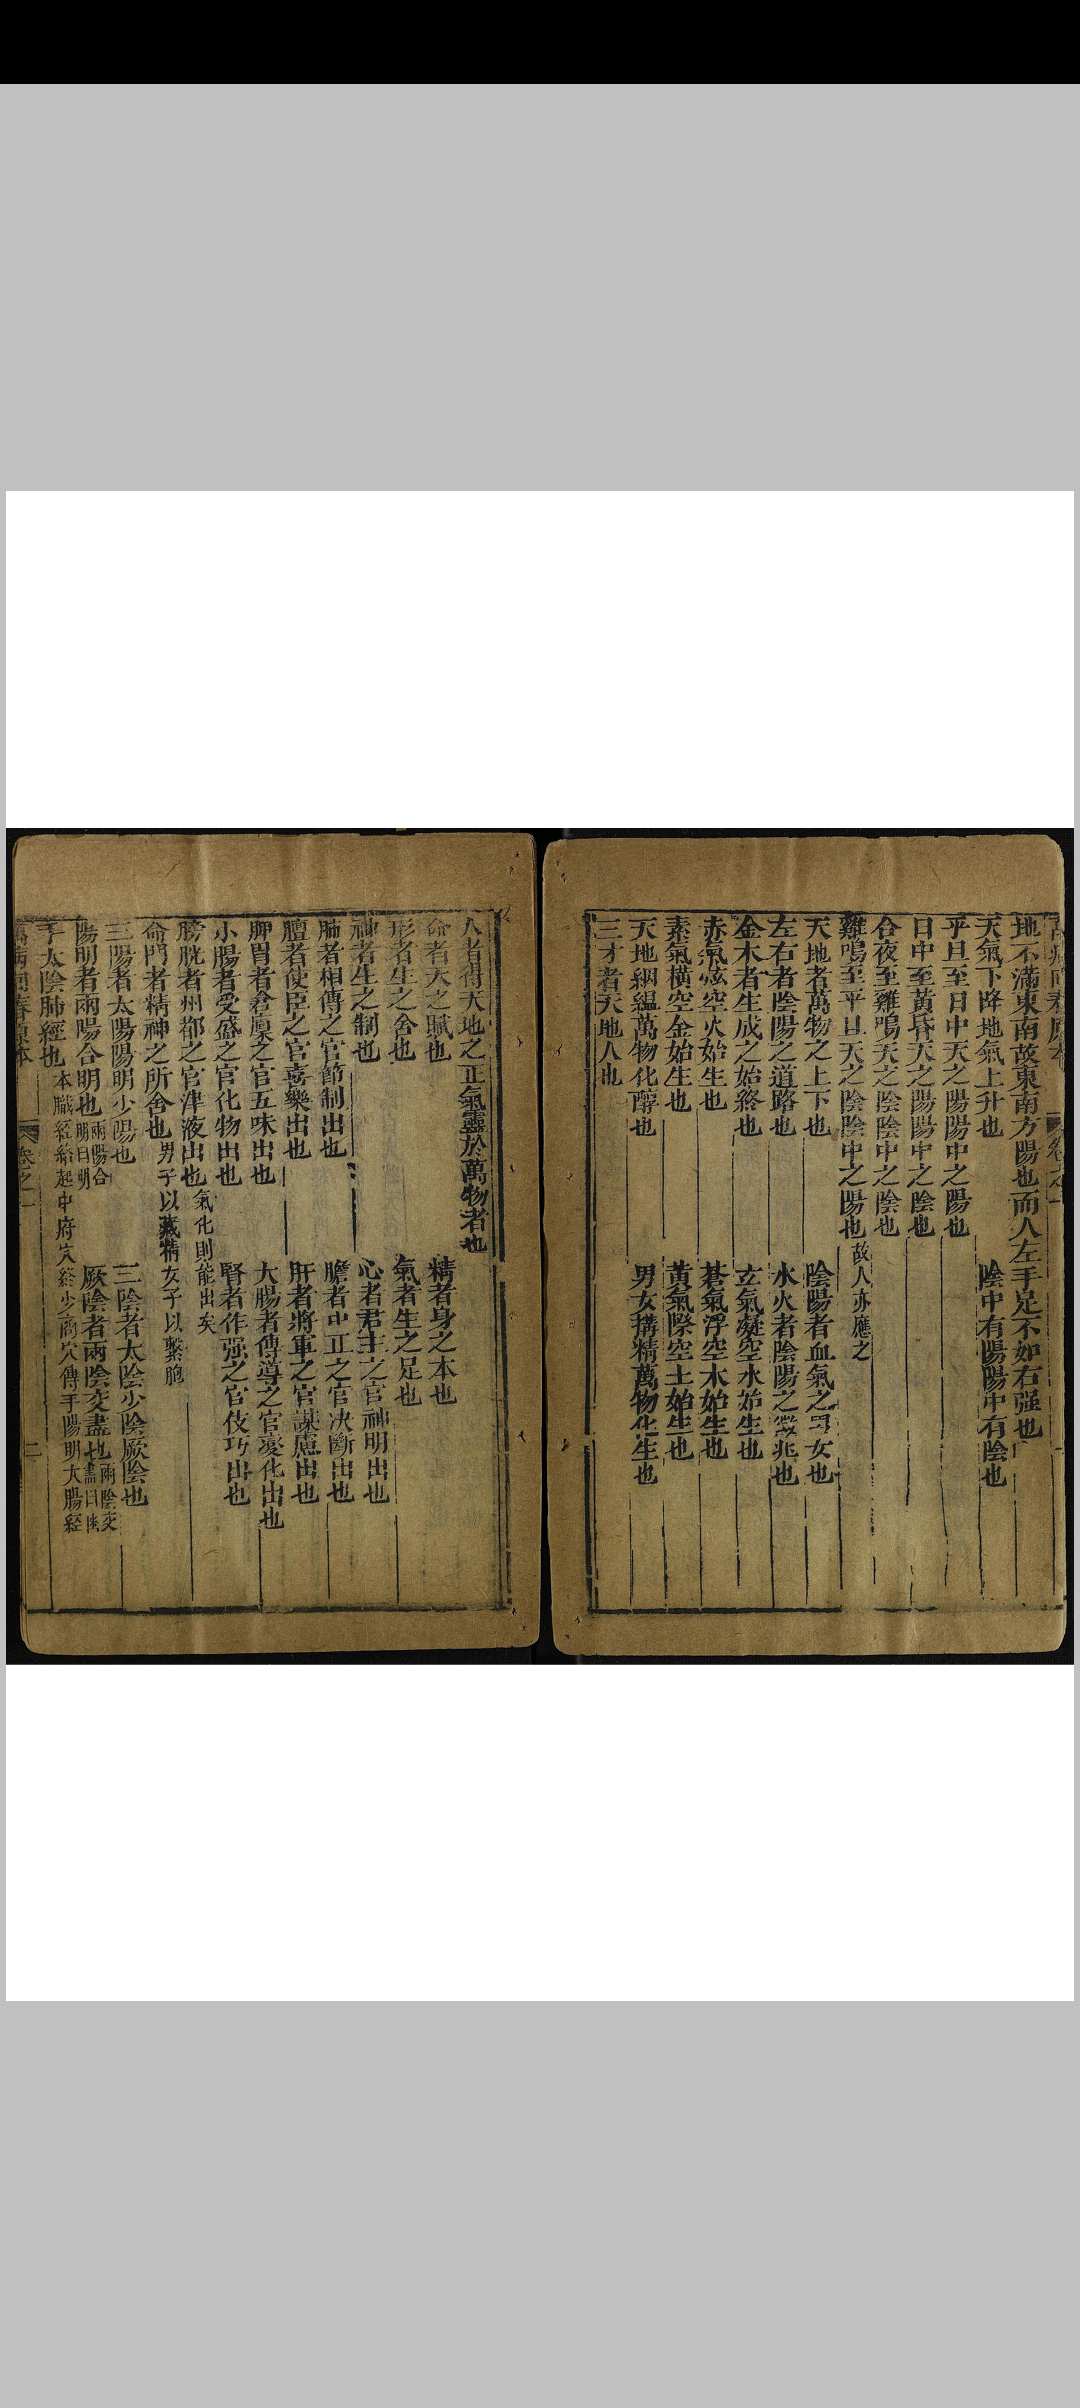 地不滿東南故東南方陽也而人左手足不如右强也
天氣下降地氣上升也　陰中有陽陽中有陰也
平旦至日中天之陽陽中之陽也
日中至黃昏天之陽陽中之陰也
合夜至雞鳴天之陰陰中之陰也
雞鳴至平旦天之陰陰中之陽也故人亦應之
天地者萬物之上下也　陰陽者血氣之男女也
左右者陰陽之道路也　水火者陰陽之徵兆也
金木者生成之始終也　玄氣凝空水始生也
赤氣炫空火始生也　蒼氣浮空木始生也
素氣橫空金始生也　黃氣際空土始生也
天地絪縕萬物化醇也　男女搆精萬物化生也
三才者天地人也
人者得天地之正氣靈於萬物者也
命者天之賦也　精者身之本也
形者生之舍也　氣者生之足也
神者生之制也　心者君主之官神明出也
肺者相傳之官節制出也　膽者中正之官决斷出也
膻者使臣之官喜樂出也　肝者將軍之官謀慮出也
脾胃者倉廩之官五味出也　大腸者傳導之官變化出也
小腸者受盛之官化物出也　腎者作强之官伎巧出也
膀胱者州都之官津液出也氣化則能出矣
命門者精神之所舍也男子以藏精女子以繫胞
三陽者太陽陽明少陽也　三陰者太陰少陰厥陰也
陽明者兩陽合明也兩陽合明曰明　厥陰者兩陰交盡也兩陰交盡曰幽
手太陰肺經也本臟經絡起中府穴終少商穴傳手陽明大腸經
萬病回春原本　卷之一　二